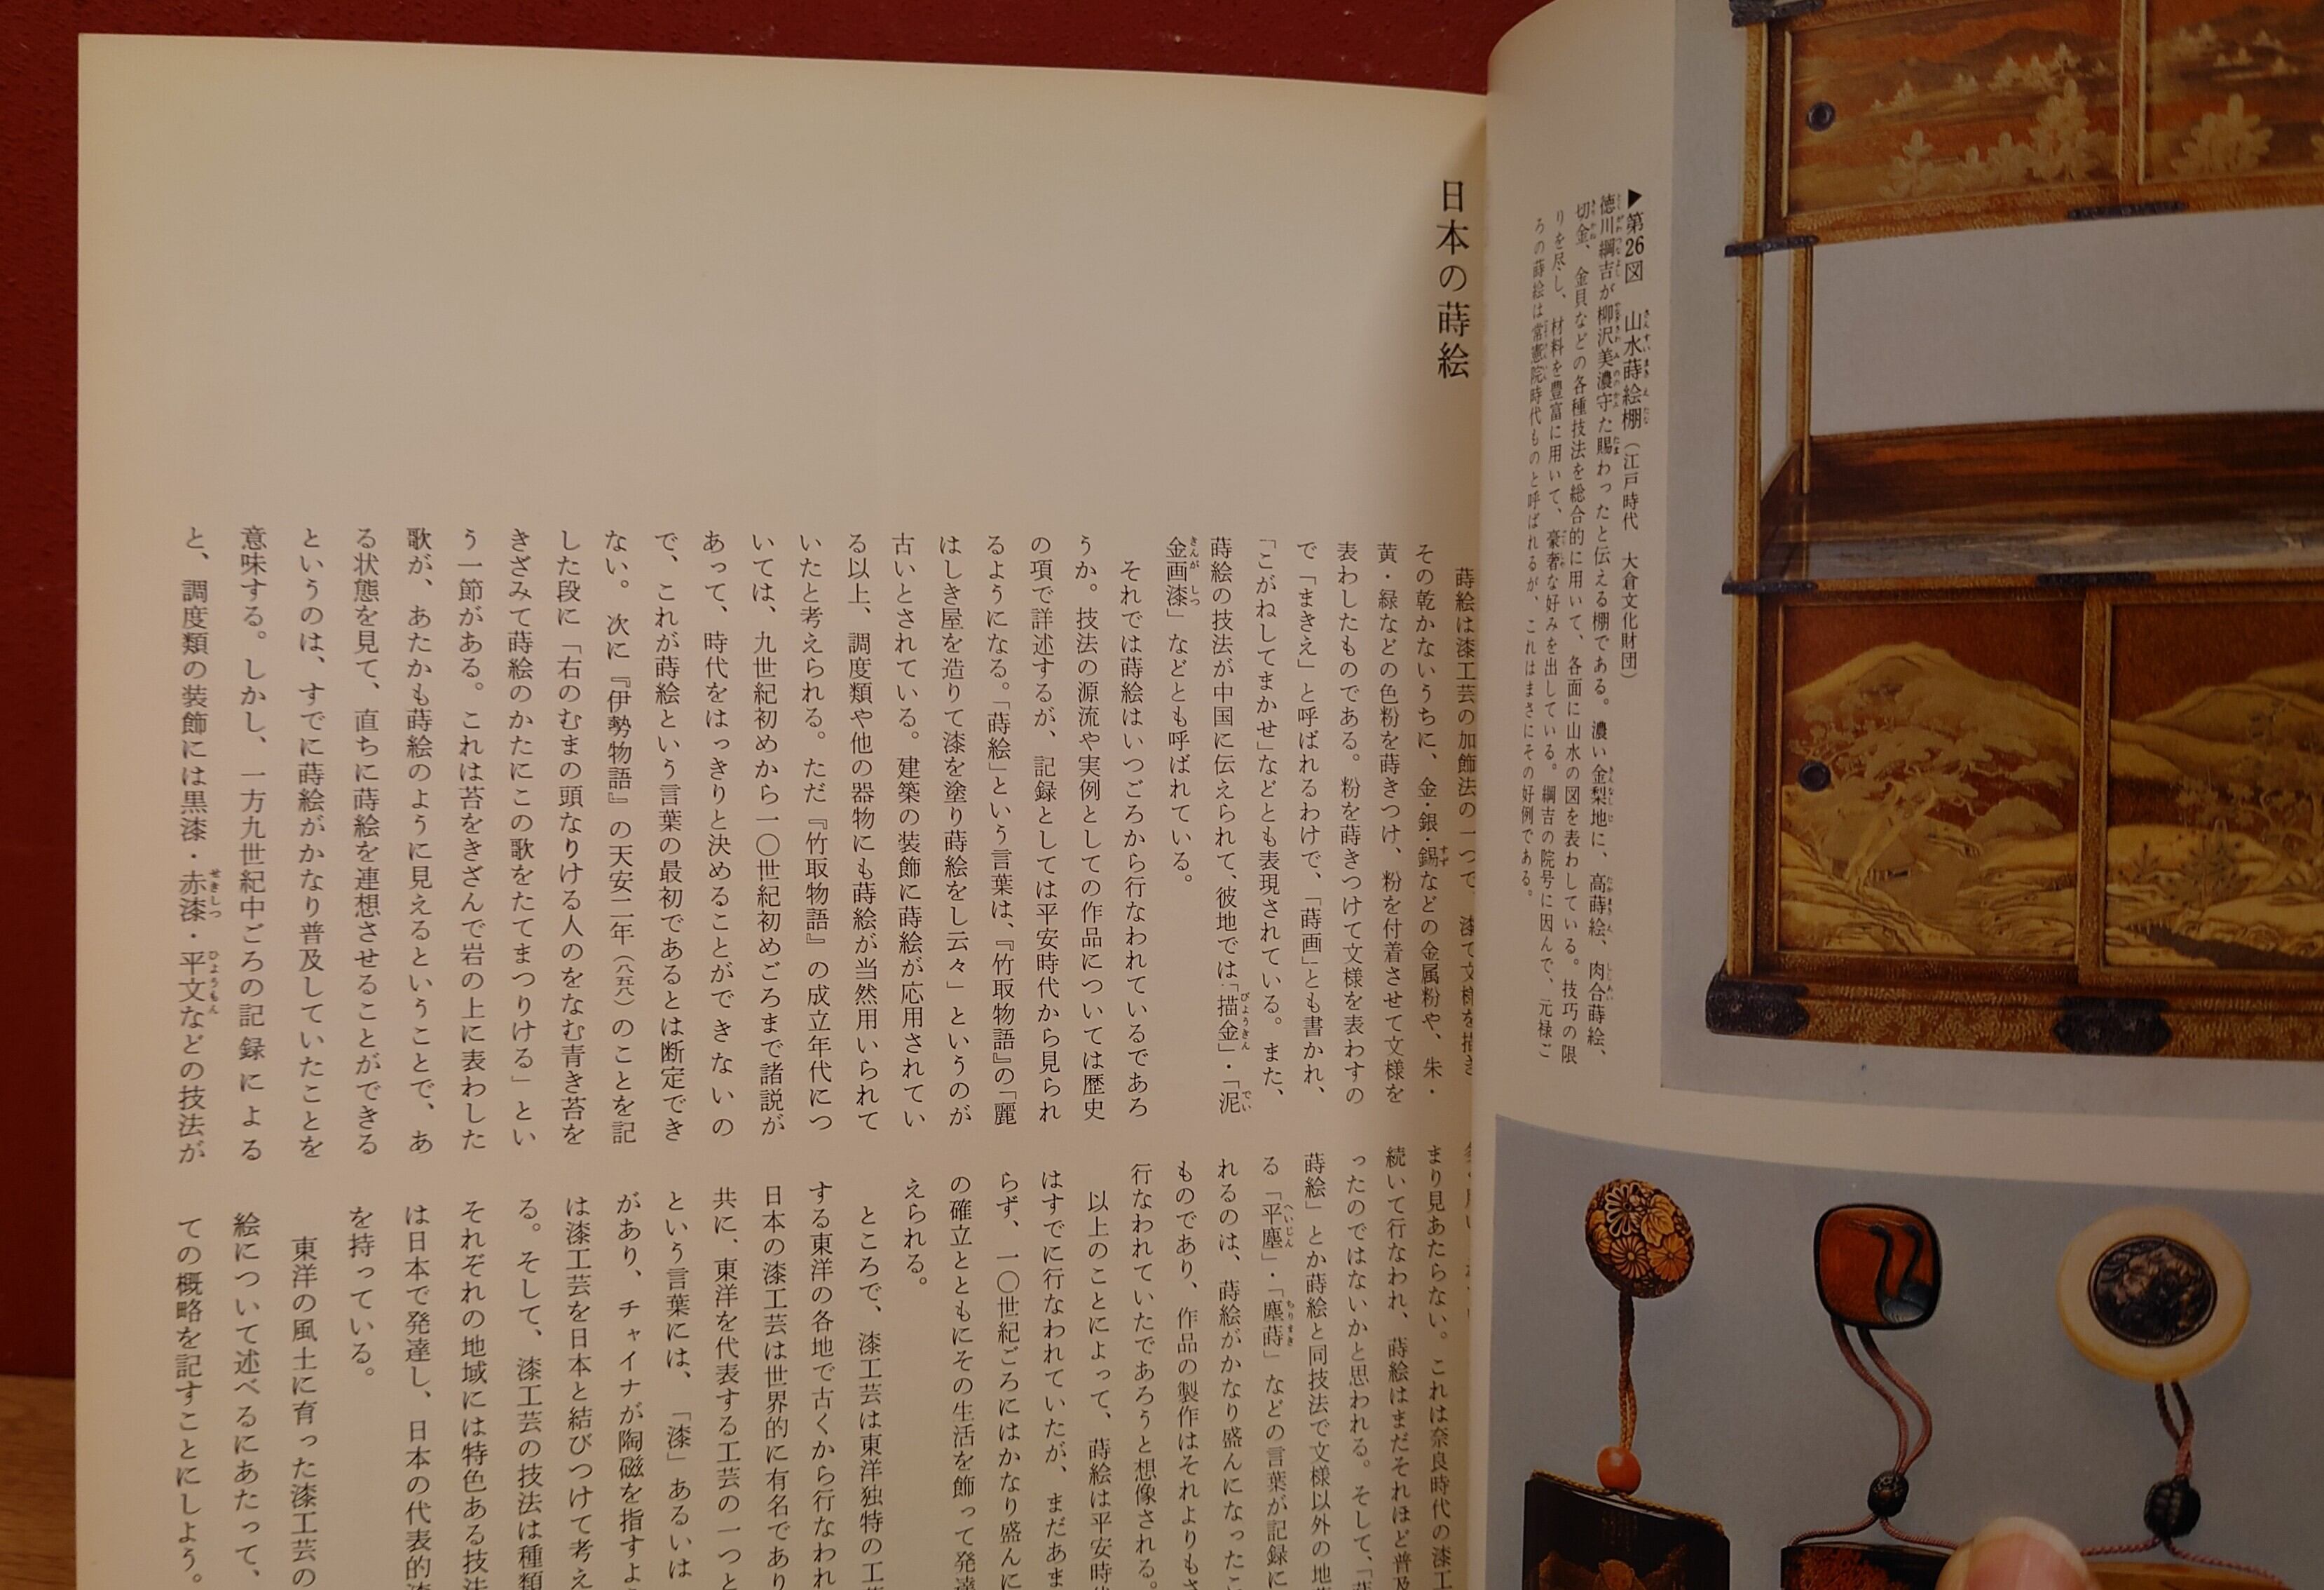 ▶第26図　山水蒔絵棚（江戸時代　大倉文化財団）
徳川綱吉が柳沢美濃守た賜わったと伝える棚である。濃い金梨地に、高蒔絵、肉合蒔絵、
切金、金貝などの各種技法を総合的に用いて、各面に山水の図を表わしている。技巧の限
りを尽し、材料を豊富に用いて、豪奢な好みを出している。綱吉の院号に因んで、元禄ご
ろの蒔絵は常憲院時代ものと呼ばれるが、これはまさにその好例である。
日本の蒔絵
蒔絵は漆工芸の加飾法の一つで　漆で文様を描き
その乾かないうちに、金・銀・錫などの金属粉や、朱・
黄・緑などの色粉を蒔きつけ、粉を付着させて文様を
表わしたものである。粉を蒔きつけて文様を表わすの
で「まきえ」と呼ばれるわけで、「蒔画」とも書かれ、
「こがねしてまかせ」などとも表現されている。また、
蒔絵の技法が中国に伝えられて、彼地では「描金」・「泥
金画漆」などとも呼ばれている。
それでは蒔絵はいつごろから行なわれているであろ
うか。技法の源流や実例としての作品については歴史
の項で詳述するが、記録としては平安時代から見られ
るようになる。「蒔絵」という言葉は、『竹取物語』の「麗
はしき屋を造りて漆を塗り蒔絵をし云々」というのが
古いとされている。建築の装飾に蒔絵が応用されてい
る以上、調度類や他の器物にも蒔絵が当然用いられて
いたと考えられる。ただ『竹取物語』の成立年代につ
いては、九世紀初めから一〇世紀初めごろまで諸説が
あって、時代をはっきりと決めることができないの
で、これが蒔絵という言葉の最初であるとは断定でき
ない。次に『伊勢物語』の天安二年（八五八）のことを記
した段に「右のむまの頭なりける人のをなむ青き苔を
きざみて蒔絵のかたにこの歌をたてまつりける」とい
う一節がある。これは苔をきざんで岩の上に表わした
歌が、あたかも蒔絵のように見えるということで、あ
る状態を見て、直ちに蒔絵を連想させることができる
というのは、すでに蒔絵がかなり普及していたことを
意味する。しかし、一方九世紀中ごろの記録による
と、調度類の装飾には黒漆・赤漆・平文などの技法が
まり見あたらない。これは奈良時代の漆工
続いて行なわれ、蒔絵はまだそれほど普及
ったのではないかと思われる。そして、「
蒔絵」とか蒔絵と同技法で文様以外の地
る「平塵」・「塵蒔」などの言葉が記録に
れるのは、蒔絵がかなり盛んになったこ
ものであり、作品の製作はそれよりもさ
行なわれていたであろうと想像される。
以上のことによって、蒔絵は平安時代
はすでに行なわれていたが、まだあま
らず、一〇世紀ごろにはかなり盛んに
の確立とともにその生活を飾って発達
えられる。
ところで、漆工芸は東洋独特の工芸
する東洋の各地で古くから行なわれ
日本の漆工芸は世界的に有名であり
共に、東洋を代表する工芸の一つと
という言葉には、「漆」あるいは
があり、チャイナが陶磁を指すよう
は漆工芸を日本と結びつけて考え
る。そして、漆工芸の技法は種類
それぞれの地域には特色ある技法
は日本で発達し、日本の代表的漆
を持っている。
東洋の風土に育った漆工芸の
絵について述べるにあたって、
ての概略を記すことにしよう。